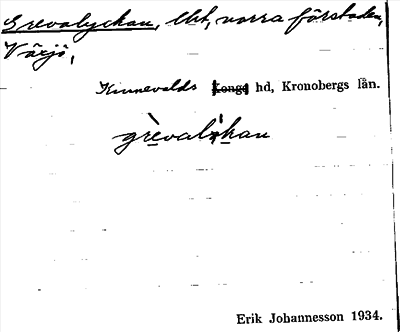 Grevalyckan, lht, norra förstaden,
Växjö,
Kinnevalds Konga hd, Kronobergs län.
Erik Johannesson 1934.